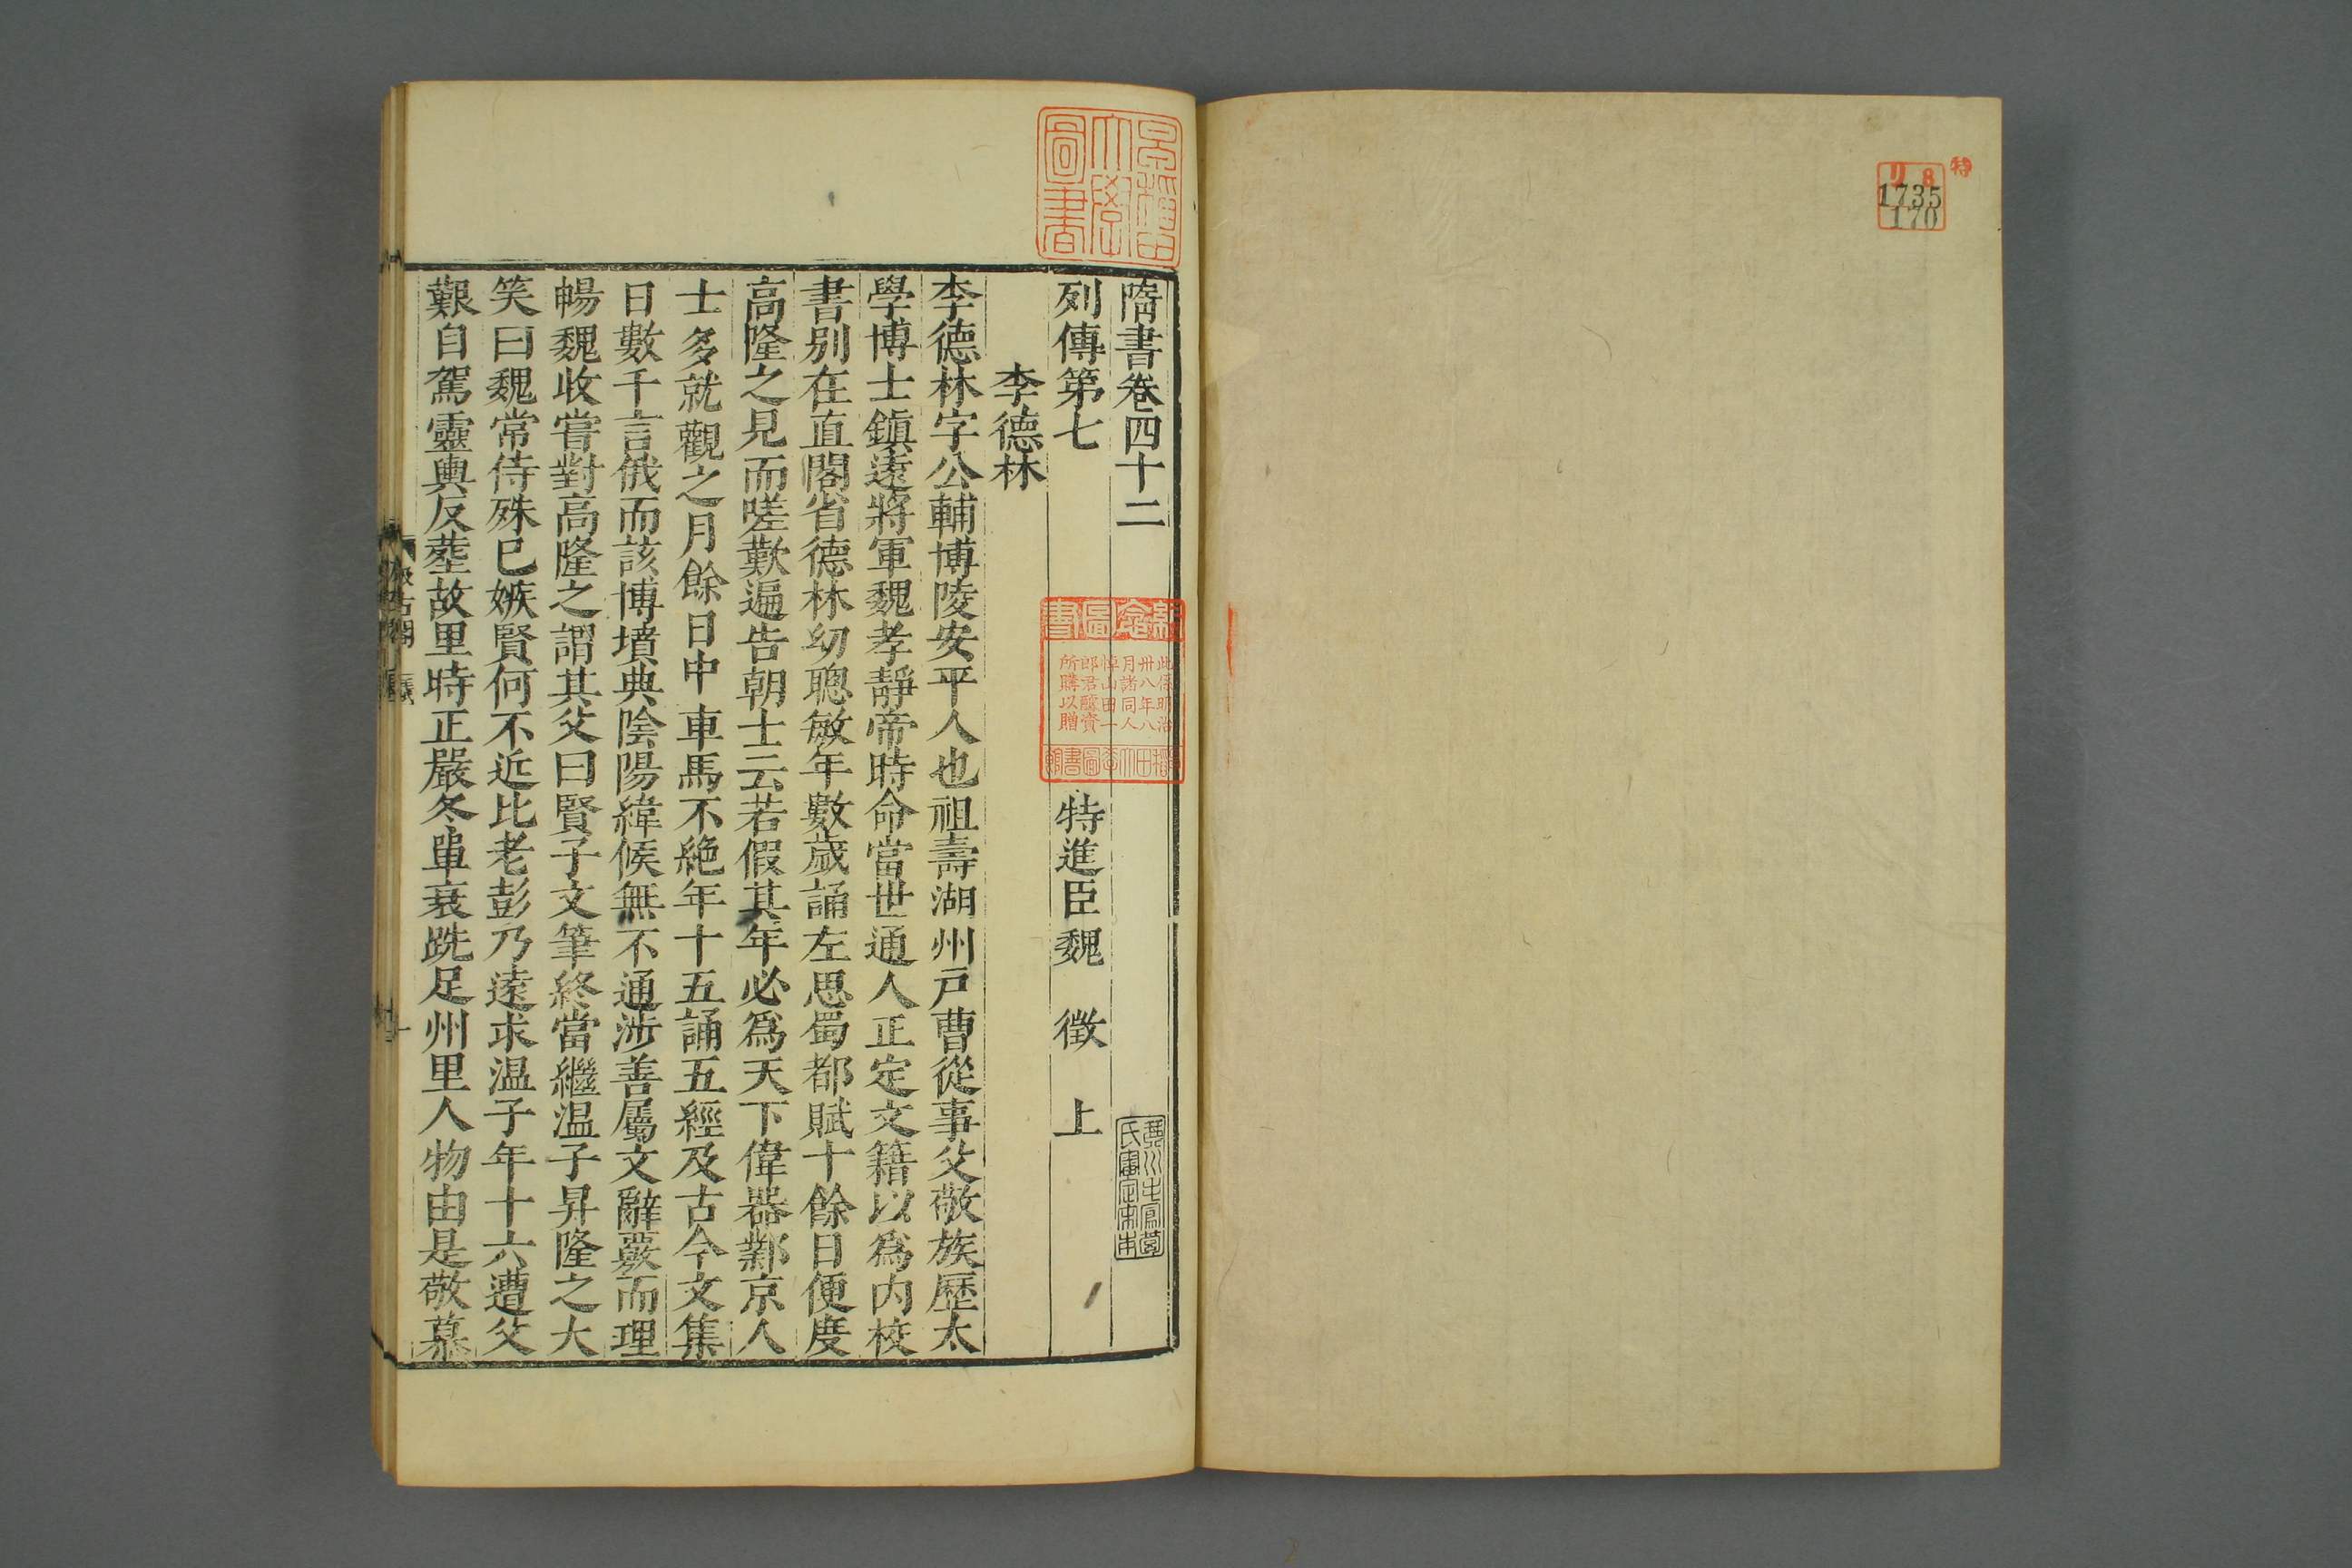 特
リ8
1735
170
早稲田
大學
圖書
隋書卷四十二
列傳第七
特進臣魏徵上
李德林
李德林字公輔博陵安平人也祖壽湖州戸曹從事父敬族歷太
學博士鎮遠將軍魏孝靜帝時命當世通人正定文籍以爲内校
書别在直閣省德林幼聰敏年數歲誦左思蜀都賦十餘日便度
高隆之見而嗟歎遍告朝士云若假其年必爲天下偉器鄴京人
士多就觀之月餘日中車馬不絶年十五誦五經及古今文集
日數千言俄而該博墳典陰陽緯候無不通涉善屬文辭覈而理
暢魏收嘗對高隆之謂其父曰賢子文筆終當繼温子昇隆之大
笑曰魏常侍殊已嫉賢何不近比老彭乃遠求温子年十六遭父
艱自駕靈輿反塟故里時正嚴冬單衰跣足州里人物由是敬慕
此係明治
卅八年八
月諸同人
悼山田一
郎君醵資
所購以贈
汲古閣